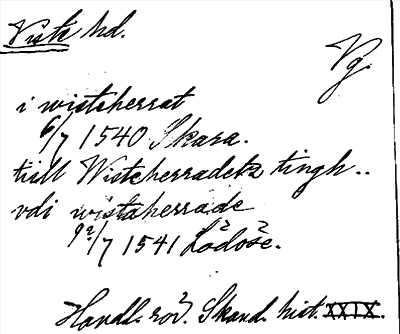 Viste hd.
Vg.
i wisteherrat
6/7 1540 Skara.
tiill Wisteherradetz tingh..
vdi wistaherrade
9?/7 1541 Lödose.
Handl. rör. Skand. hist. XXIX.